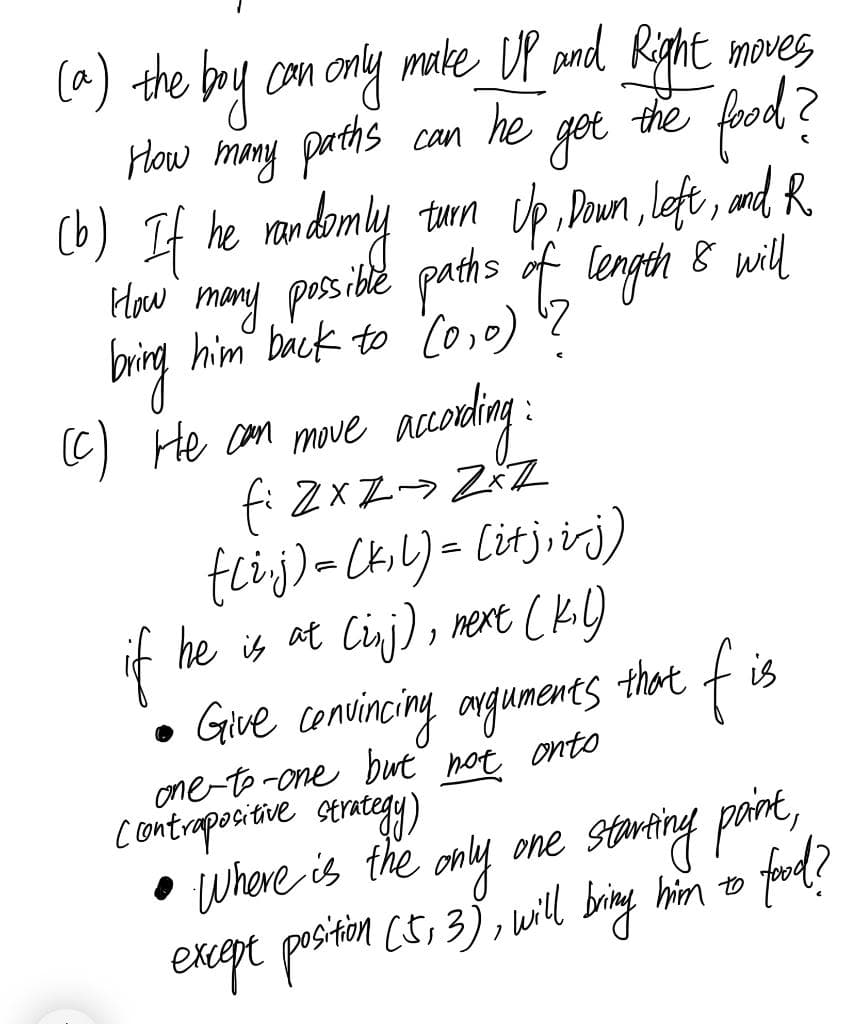 (a) the boy can only make UP and Right moves
How many paths can he get the food?
(b) If he randomly turn Up, Down, left, and R
How many possible paths of length 8 will
bring him back to (0,0)?
(c) He can move according:
f: ℤ×ℤ→ℤ×ℤ
f(i,j)=(k,l)=(i+j,i-j)
if he is at (i,j), next (k,l)
• Give convincing arguments that f is
one-to-one but not onto
(contrapositive strategy)
• Where is the only one starting point,
except position (5,3), will bring him to food?